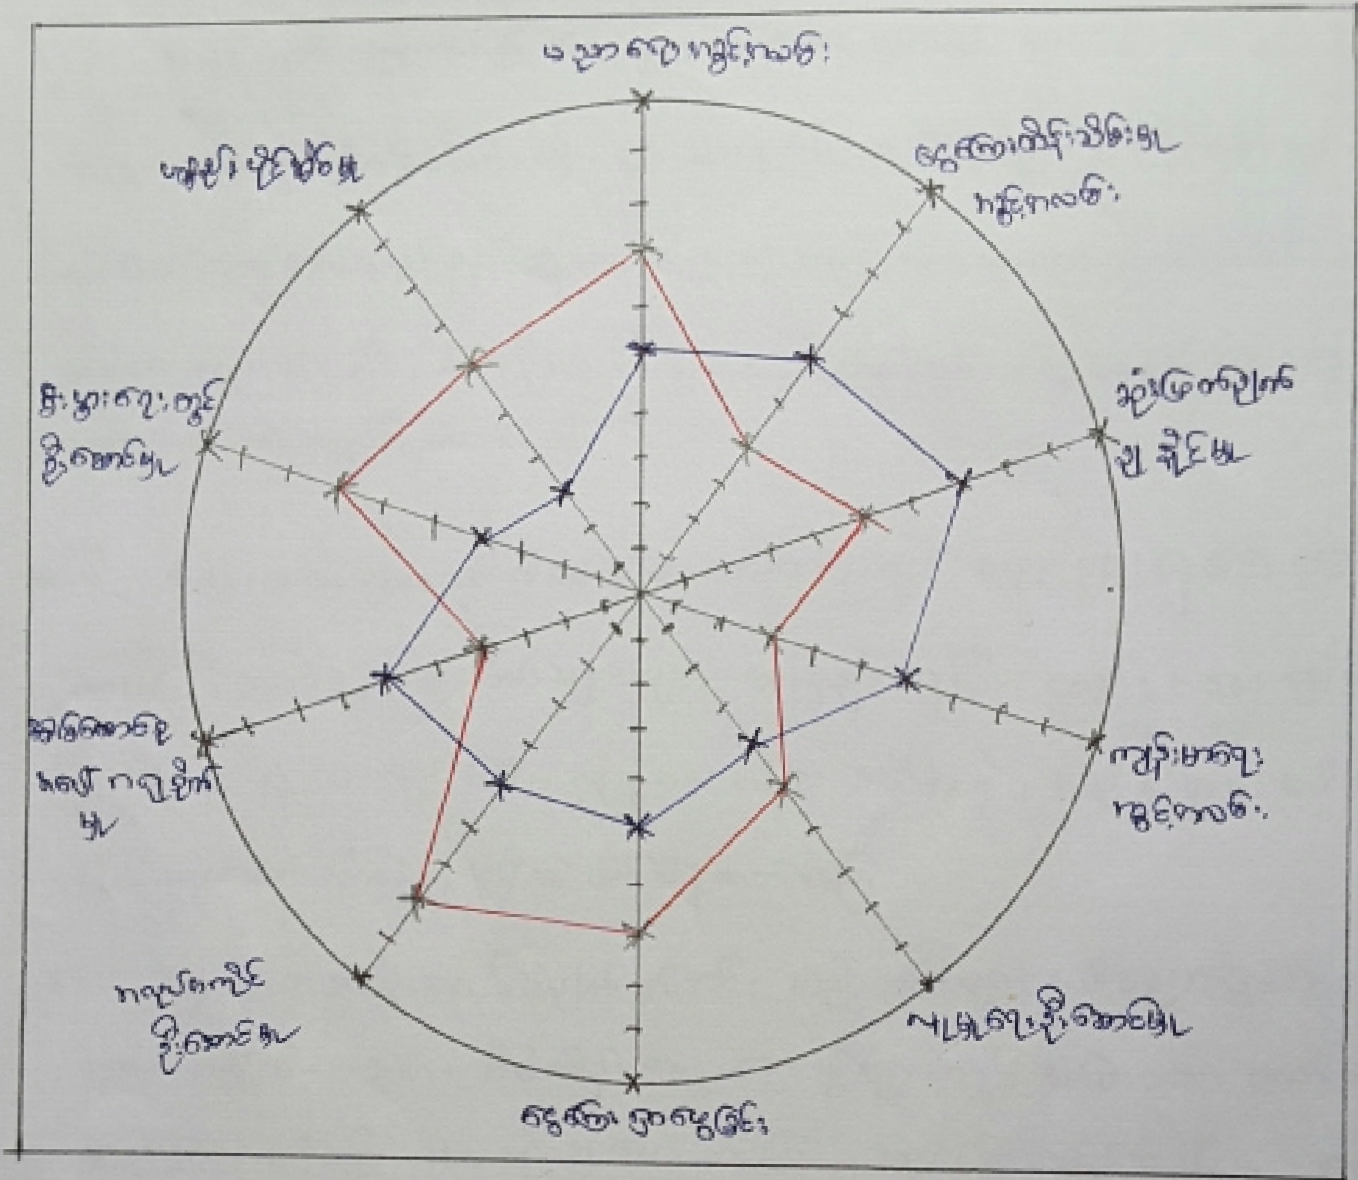 ပညာရေး အခွင့်အလမ်း
ငွေကြေးထိန်းသိမ်းမှု
အခွင့်အလမ်း
ဆုံးဖြတ်ချက်
ချနိုင်မှု
ကျန်းမာရေး
အခွင့်အလမ်း
လူမှုရေးဦးဆောင်မှု
ငွေကြေး ရှာဖွေခြင်း
အလုပ်အကိုင်
ဦးဆောင်မှု
မှု
စီးပွားရေးတွင်
ဦးဆောင်မှု
ပစ္စည်းပိုင်ဆိုင်မှု